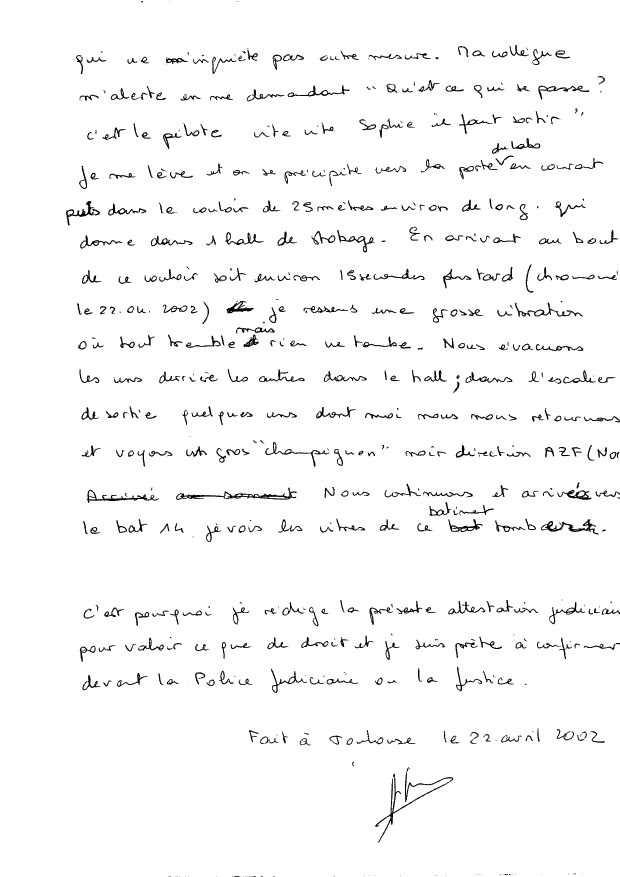 qui ne m'inquiète pas outre mesure. Ma collègue
m'alerte en me demandant "Qu'est ce qui se passe?
c'est le pilote vite vite Sophie il faut sortir"
Je me lève et on se précipite vers la porte du labo en courant
puis dans le couloir de 25 mètres environ de long. qui
donne dans 1 hall de stockage. En arrivant au bout
de ce couloir soit environ 15 secondes plus tard (chronomé
le 22.04.2002) je ressens une grosse vibration
où tout tremble mais rien ne tombe. Nous évacuons
les uns derrière les autres dans le hall; dans l'escalier
de sortie quelques uns dont moi nous nous retournons
et voyons un gros "champignon" noir direction AZF (Nor
Arrivée au sommet Nous continuons et arrivés vers
le bat 14 je vois les vitres de ce bat batiment
C'est pourquoi je rédige la présente attestation judiciair
pour valoir ce que de droit et je suis prête à confirmer
devant la Police Judiciaire ou la Justice.
Fait à Toulouse le 22 avril 2002